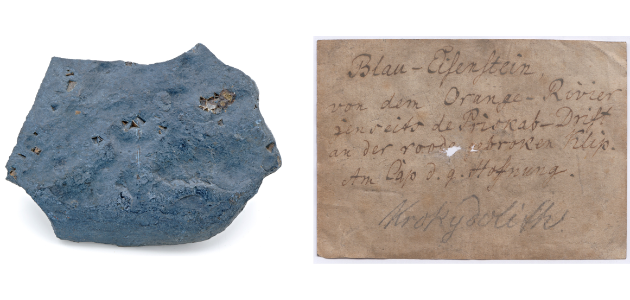 Blau-Eisenstein
von dem Orange-Rivier
jenseits de Priskab-Drift
an der roode gebroken Klip.
Am Cap d. g. Hofnung.
Krokydolith.